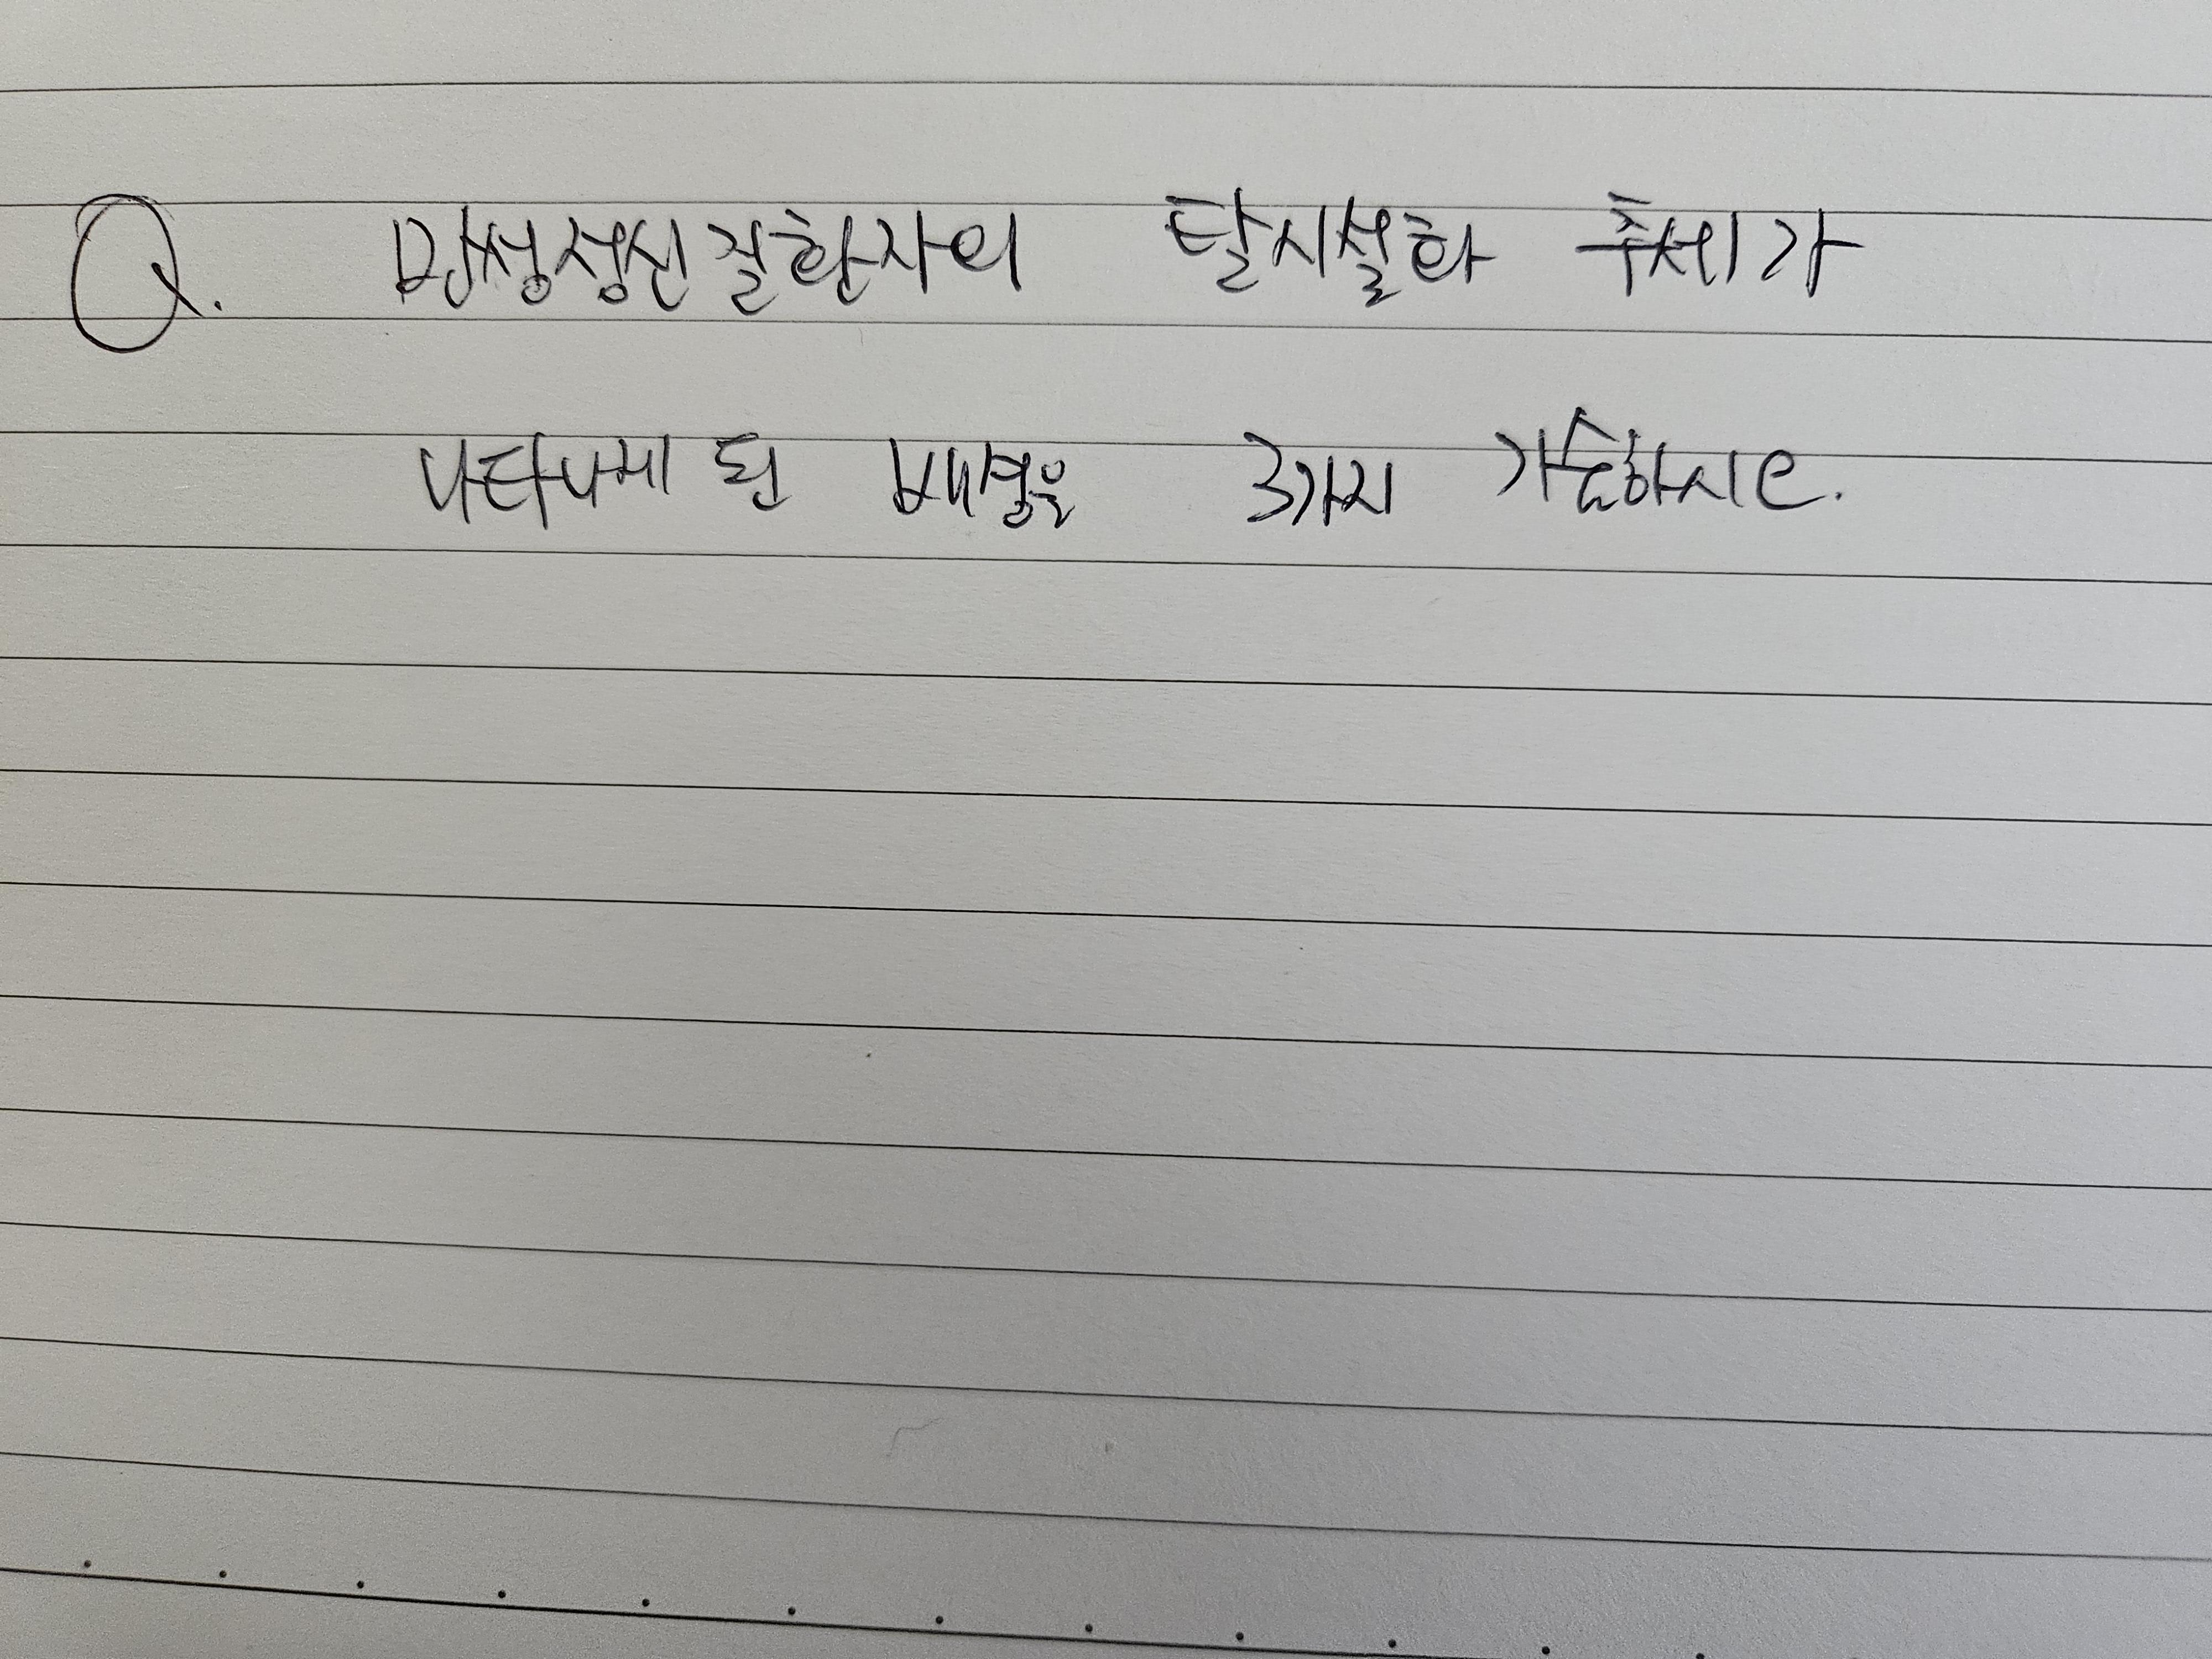 Q. 만성정신질환자의 탈시설화 추세가
나타나게 된 배경을 3가지 기술하시오.